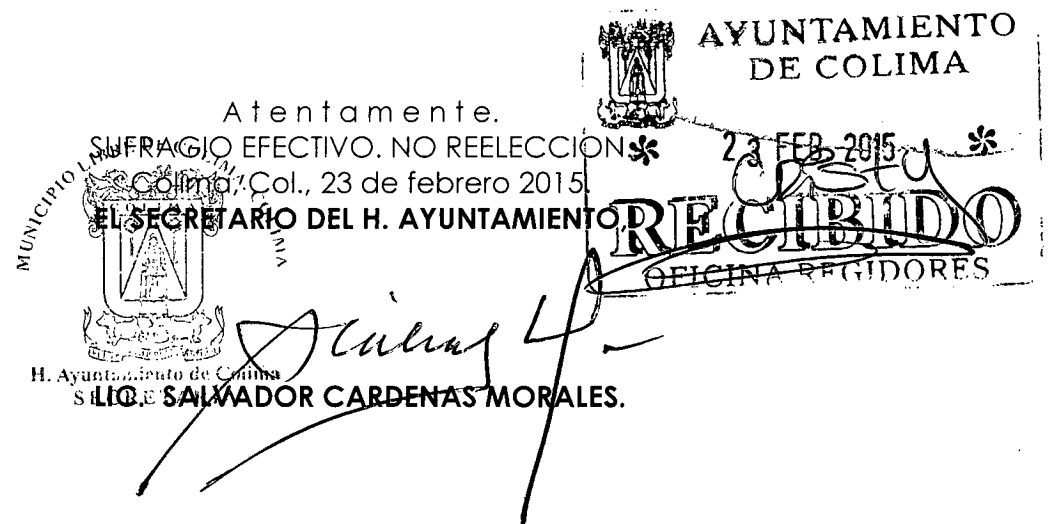 AYUNTAMIENTO
DE COLIMA
23 FEB 2015
RECIBIDO
OFICINA REGIDORES
Atentamente.
SUFRAGIO EFECTIVO. NO REELECCION.
Colima, Col., 23 de febrero 2015.
EL SECRETARIO DEL H. AYUNTAMIENTO,
MUNICIPIO
H. Ayuntamiento de Colima
LIC. SALVADOR CARDENAS MORALES.